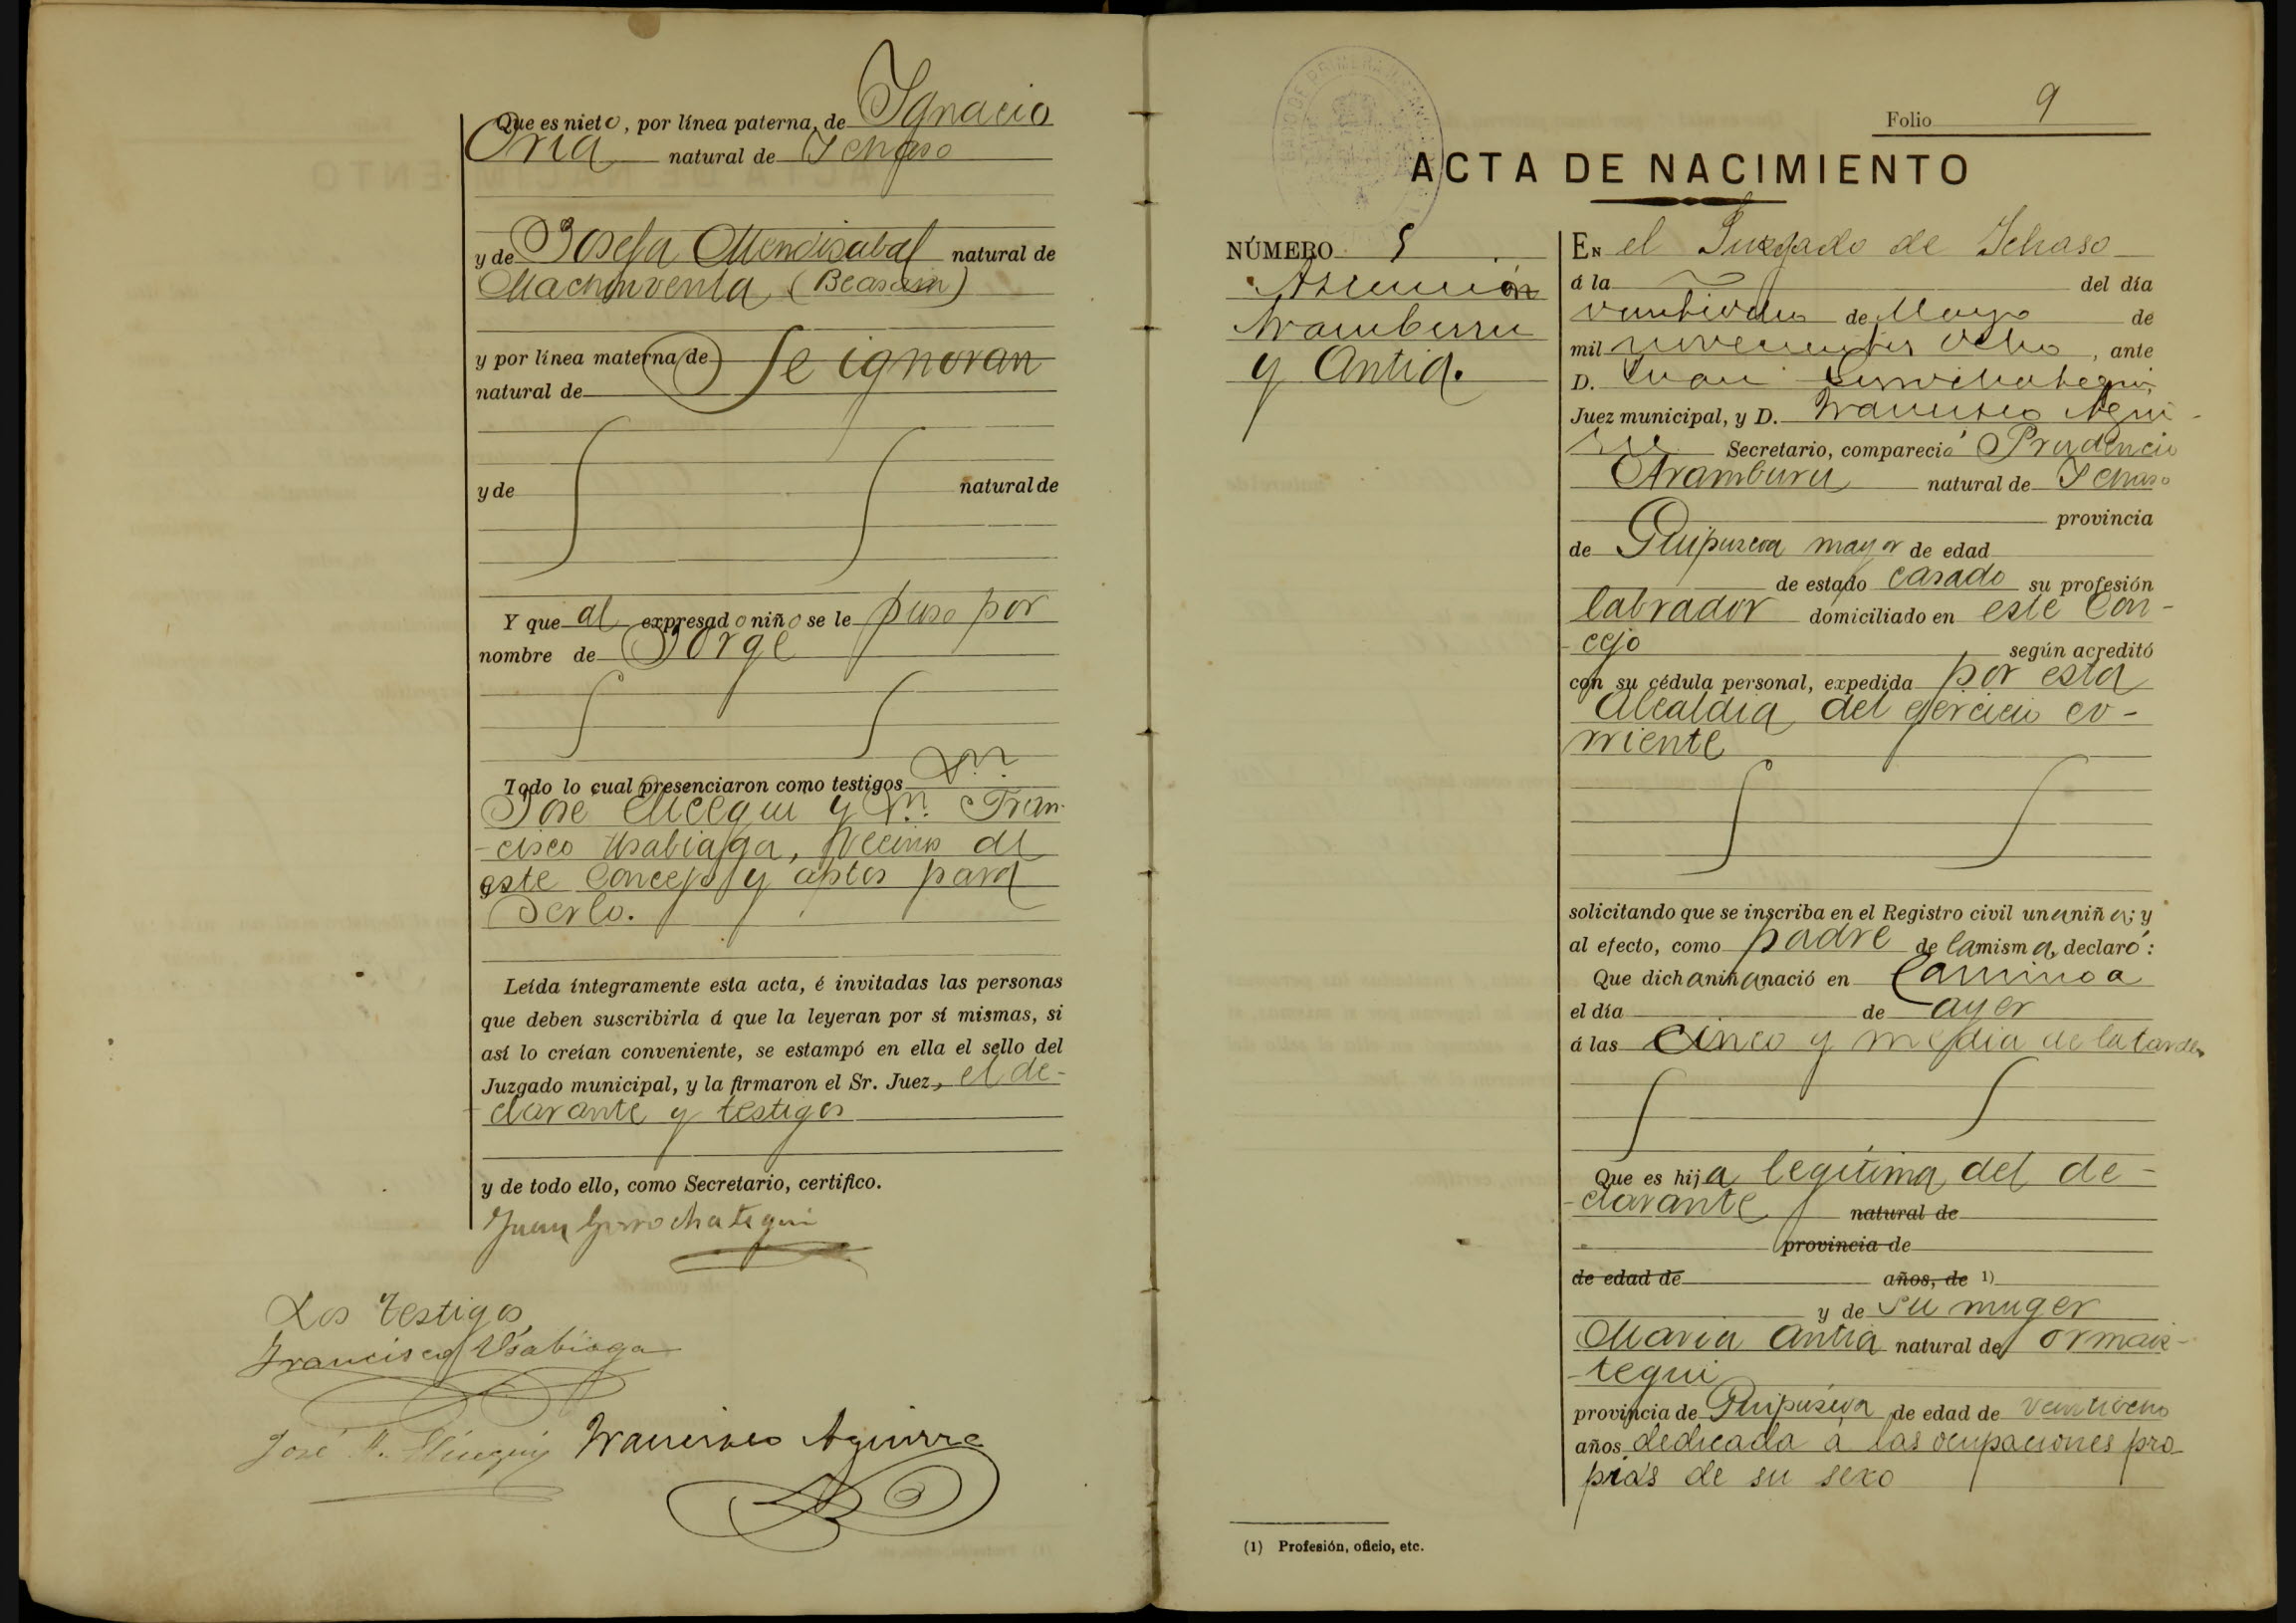 Que es nieto, por línea paterna, de Ignacio
Oria natural de Ichaso
y de Josefa Mendisabal natural de
Machinventa (Beasain)
y por línea materna de Se ignoran
natural de
y de natural de
Y que al expresado niño se le puso por
nombre de Jorge
Todo lo cual presenciaron como testigos Dn.
José y Dn. Fran-
-cisco Usabiaga, vecinos de
este Concejo y aptos para
serlo.
Leída íntegramente esta acta, é invitadas las personas
que deben suscribirla á que la leyeran por sí mismas, si
así lo creían conveniente, se estampó en ella el sello del
Juzgado municipal, y la firmaron el Sr. Juez, el de-
-clarante y testigos
y de todo ello, como Secretario, certifico.
Juan Gorrochategui
Los testigos
Francisco Usabiaga
José Francisco Aguirre
Folio 9
ACTA DE NACIMIENTO
NÚMERO 5
Asunción
Aramburu
y Antia.
EN el Juzgado de Ichaso
á la del día
veintidos de Mayo de
mil novecientos ocho, ante
D. Juan Gorrochategui,
Juez municipal, y D. Francisco Agui-
rre Secretario, compareció Prudencio
Aramburu natural de Ichaso
provincia
de Guipuzcoa mayor de edad
de estado casado su profesión
labrador domiciliado en este Con-
-cejo según acreditó
con su cédula personal, expedida por esta
Alcaldia del ejercicio co-
rriente
solicitando que se inscriba en el Registro civil una niña; y
al efecto, como padre de la misma, declaró:
Que dicha niña nació en Caminoa
el día de ayer
á las cinco y media de la tarde
Que es hija legitima del de-
-clarante natural de
provincia de
de edad de años, de 1)
y de su muger
Maria Antia natural de Ormaiz-
-tegui
provincia de Guipúzcoa de edad de
años dedicada á las ocupaciones pro-
pias de su sexo
(1) Profesión, oficio, etc.